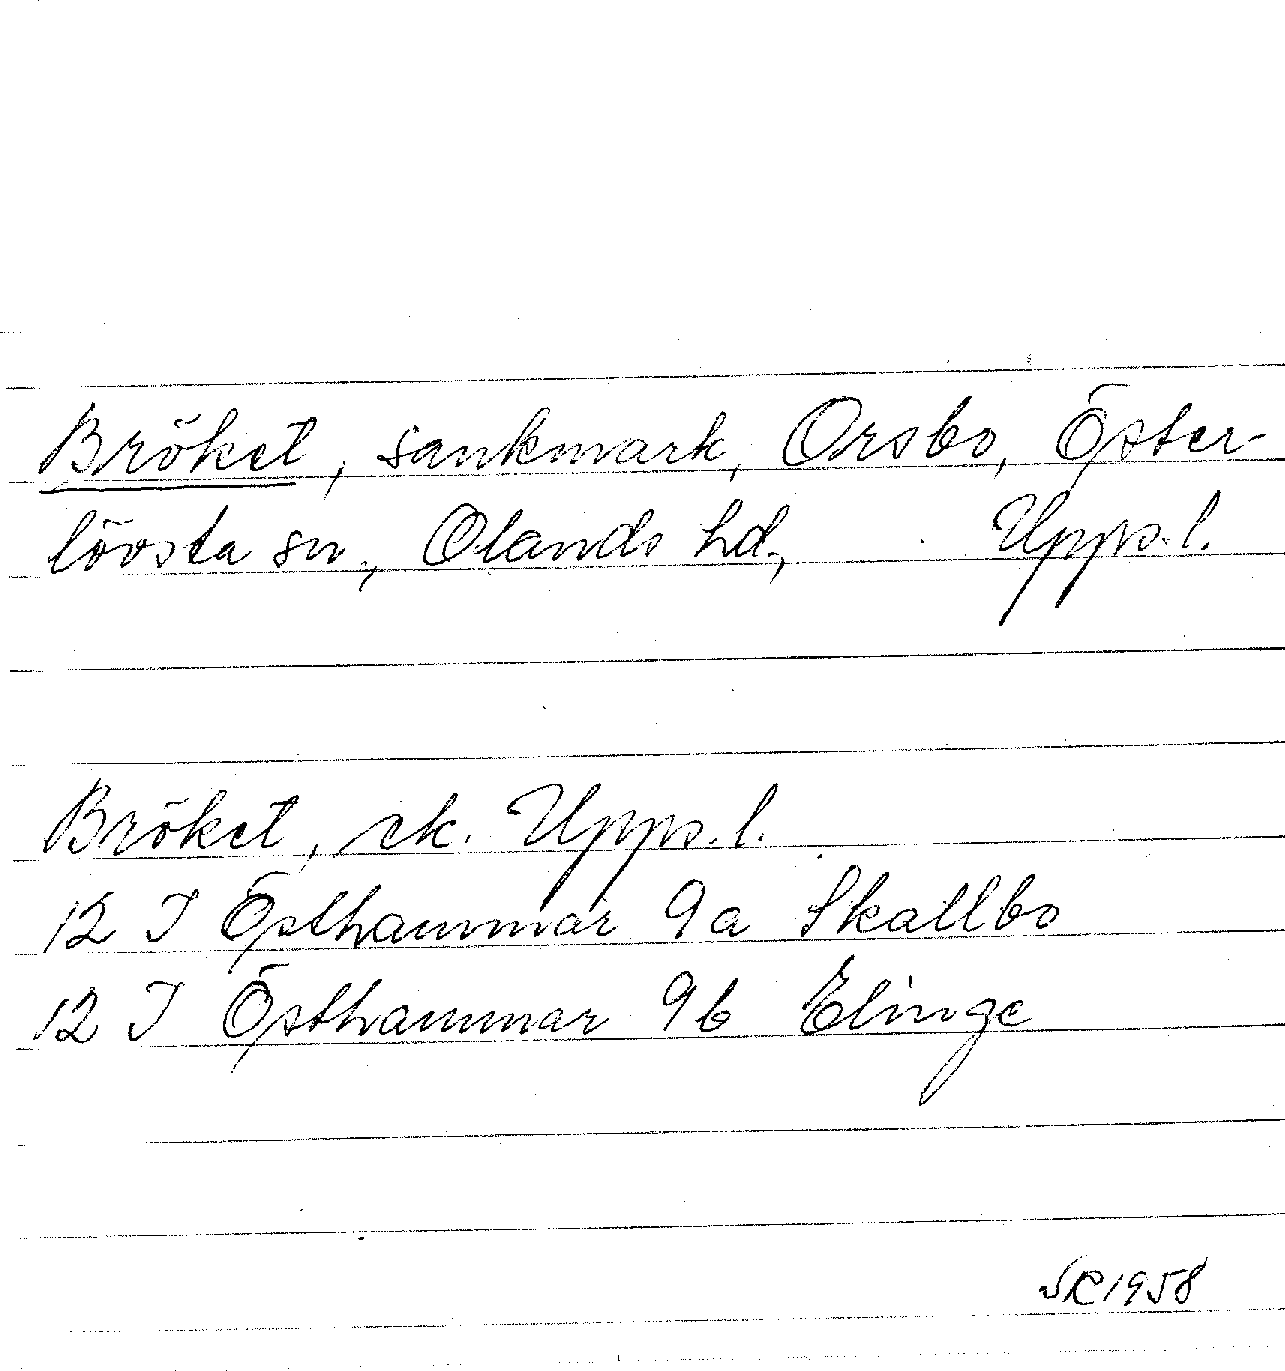 Bröket, sankmark, Orsbo, Öster-
lövsta sn., Olands hd., Upps.l.
Bröket, ek. Upps.l.
12 I Östhammar 9a Skallbo
12 I Östhammar 9b Elinge
1958